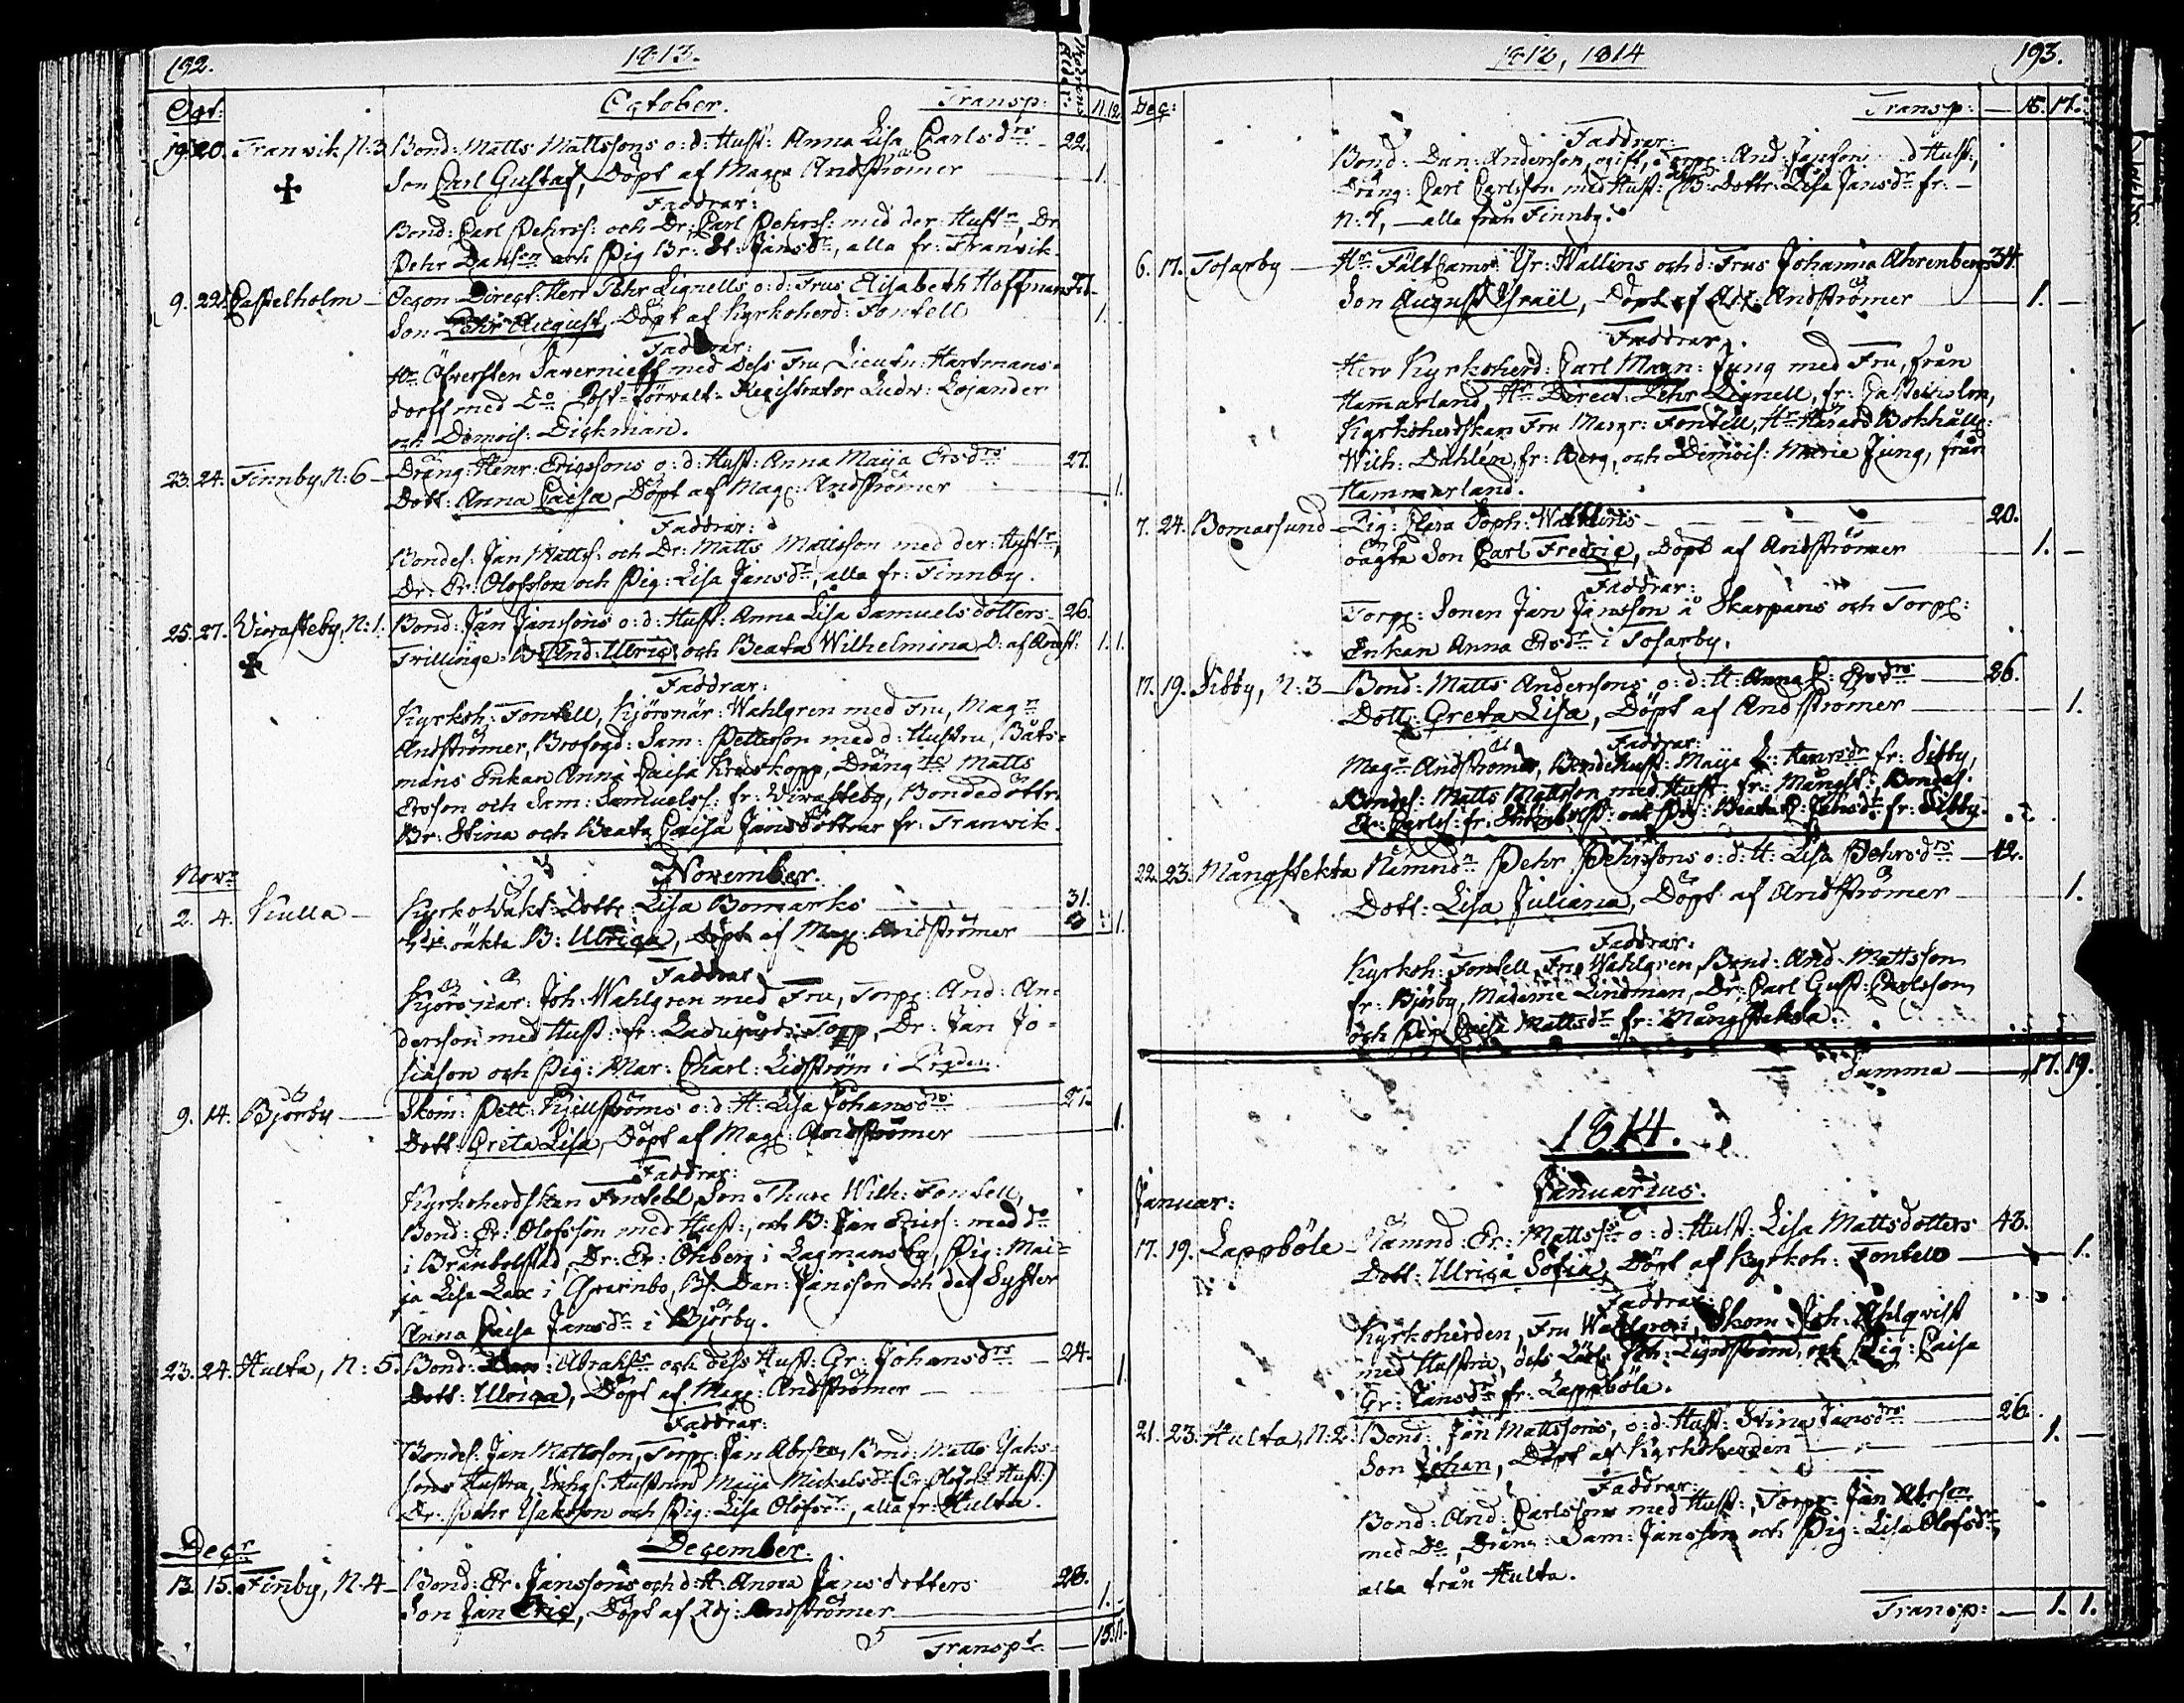 192. 1813.
Oct: October. Transp: 11.12.
19. 20. Tranvik N:3 Bond: Matts Mattssons o: d: Hust: Anna Lisa Carlsdrs 22.
Son Carl Gustaf, Döpt af Mag: Andströmer 1.
Faddrar:
Bond: Carl Pehrss: och Dr: Carl Pehrss: med der: Hustr, Dr
Pehr Danson och Pig Br: St: Jansdr, alla fr: Tranvik.
9. 22. Castelholm Direct: Herr Pehr Lignells o: d: Frus Elisabeth Hoffmans 27.
Son Pehr August, Döpt af Kyrkoherd: Fontell 1.
Faddrar:
Hr Öfversten med Dess Fru, Lieutn: Hartmans-
dorff med Post-förvalt: Registrator Ludv: Lojander
och Demois: Dickman.
23. 24. Finnby, N:6 Dräng: Henr: Ericssons o: d: Hust: Anna Maija Ersdrs 27.
Dott: Anna Caisa, Döpt af Mag: Andströmer 1.
Faddrar:
Bondes: Jan Mattss: och Dr: Matts Mattsson med der: Hustr,
Dr. Er: Olofsson och Pig: Lisa Jansdr, alla fr: Finnby.
25. 27. Wivasteby, N:1. Bond: Jan Janssons o: d: Hust: Anna Lisa Samuelsdotters 26.
Trillinge: B: And: Ulric och Beata Wilhelmina D: af Andst: 1. 1.
Faddrar:
Kyrkoh: Fontell, Wahlgren med Fru, Magr
Andströmer, Brofogd: Sam: Pettersson med d: Hustru, Båts-
mans Enkan Anna Caisa Kruskopp, Drängne Matts
Ersson och Sam: Samuelss: fr: Wivasteby, Bondedöttr:
Br: Stina och Beata Caisa Jansdöttrar fr: Tranvik.
Novr November.
2. 4. Kulla Kyrkovakt: Dottr: Lisa Bomarks 31.
oäkta B: Ulrica, Döpt af Mag: Andströmer 1.
Faddrar
Joh: Wahlgren med Fru, Torp: And: An-
dersson med Hust: fr: Torp, Dr: Jan Jo-
siasson och Pig: Mar: Charl: Lidström i
9. 14. Björby Skom: Pett: Kjellströms o: d: H: Lisa Johansdrs 27.
Dott: Greta Lisa, Döpt af Mag: Andströmer 1.
Faddrar:
Kyrkoherdskan Fontell, Son Thure Wilh: Fontell,
Bond: Er: Olofsson med Hust:, och B: Jan Ericss: med do
i Brännbolstad, Dr: Er: Öhberg i Lagmansby, Pig: Mai-
ja Lisa Lax i Qvarnbo, Bs: Dan: Jansson och des Syster
Anna Caisa Jansdr i Björby.
23. 24. Hulta, N:5. Bond: Abrahss och dess Hust: Gr: Johansdrs 24.
Dott: Ulrica, Döpt af Mag: Andströmer 1.
Faddrar:
Bondes: Jan Mattsson, Torp: Jan Abrson, Bond: Matts Isaks-
sons Hustru, Hustrun Maija Mickelsdr (Er: Olofss Hust:)
Dr: Pehr Isaksson och Pig: Lisa Olofsdr, alla fr: Hulta.
Decr December.
13. 15. Finby, N:4 Bond: Er: Janssons och d: H: Anna Jansdotters 28.
Son Jan Eric, Döpt af Adj: Andströmer 1.
Transpt 15.17.
1813, 1814 193.
Dec: Transp: 15. 17.
Faddrar:
Bond: Dan: Andersson, ogift, Torp: And: Jansson d Hust:,
Dräng: Carl Carlsson med Hust: B: Dottr: Lisa Jansdr fr:
N:7, alla från Finnby.
6. 17. Tosarby Hr Fält Camr: Gr: Wallins och d: Frus Johanna Ahrenbergs 34.
Son August Israël, Döpt af Adj: Andströmer 1.
Faddrar:
Herr Kyrkoherd: Carl Magn: Jung med Fru, från
Hammarland, Hr Direct: Pehr Lignell, fr: Castelholm,
Kyrkoherdskan Fru Margr: Fontell, Hr Härads Bokhåll:
Wilh: Dahlén, fr: Berg, och Demois: Marie Jung, från
Hammarland.
7. 24. Bomarsund Pig: Clara Soph: Wahlins 20.
oägta Son Carl Fredric, Döpt af Andströmer 1.
Faddrar:
Torp: Sonen Jan Jansson å Skarpans och Torp:
Enkan Anna Ersdr i Tosarby.
17. 19. Sibby, N:3 Bond: Matts Anderssons o: d: H: Anna C: Ersdrs 36.
Dott: Greta Lisa, Döpt af Andströmer 1.
Faddrar:
Magr Andströmer, Bondehust: Maija L: Henrsdr fr: Sibby,
Bondes: Matts Mattsson med Hust: fr: Mångst:, Bondes:
Er: Carlss: fr: och Pig: Beata C: Jansdr fr: Sibby.
22. 23. Mångstekta Nämnd: Pehr Pehrssons o: d: H: Lisa Pehrsdrs 42.
Dott: Lisa Juliana, Döpt af Andströmer 1.
Faddrar:
Kyrkoh: Fontell, Fru Wahlgren, Bond: And: Mattsson
fr: Björby, Madame Lindman, Dr: Carl Gust: Carlsson
och Pig: Caisa Mattsdr fr: Mångstekta.
Summa 17. 19.
1814.
Januar: Januarius.
17. 19. Lappböle Nämnd: Er: Mattss: o: d: Hust: Lisa Mattsdotters 43.
Dott: Ulrica Sofia, Döpt af Kyrkoh: Fontell 1.
Faddrar:
Kyrkoherden, Fru Wahlgren, Skom: Joh: Ahlqvist
med Hustru, dess Lär: Joh: och Pig: Caisa
Gr: Jansdr fr: Lappböle.
21. 23. Hulta, N:2. Bond: Jan Mattssons, o: d: Hust: Stina Jansdrs 26.
Son Johan, Döpt af Kyrkoherden 1.
Faddrar:
Bond: And: Carlsson med Hust:, Torpr: Jan Abrson
med Do, Dräng: Sam: Jansson och Pig: Lisa Olofsdr,
alla från Hulta.
Transp: 1. 1.